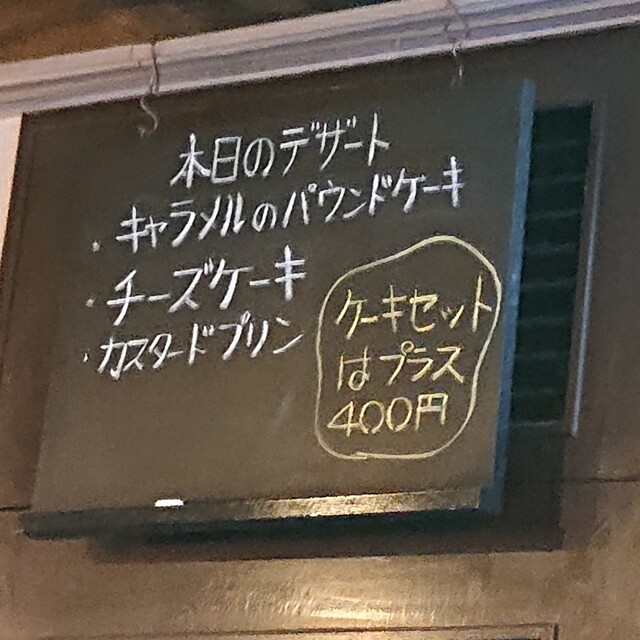 本日のデザート
・キャラメルのパウンドケーキ
・チーズケーキ
・カスタードプリン
ケーキセット
はプラス
400円